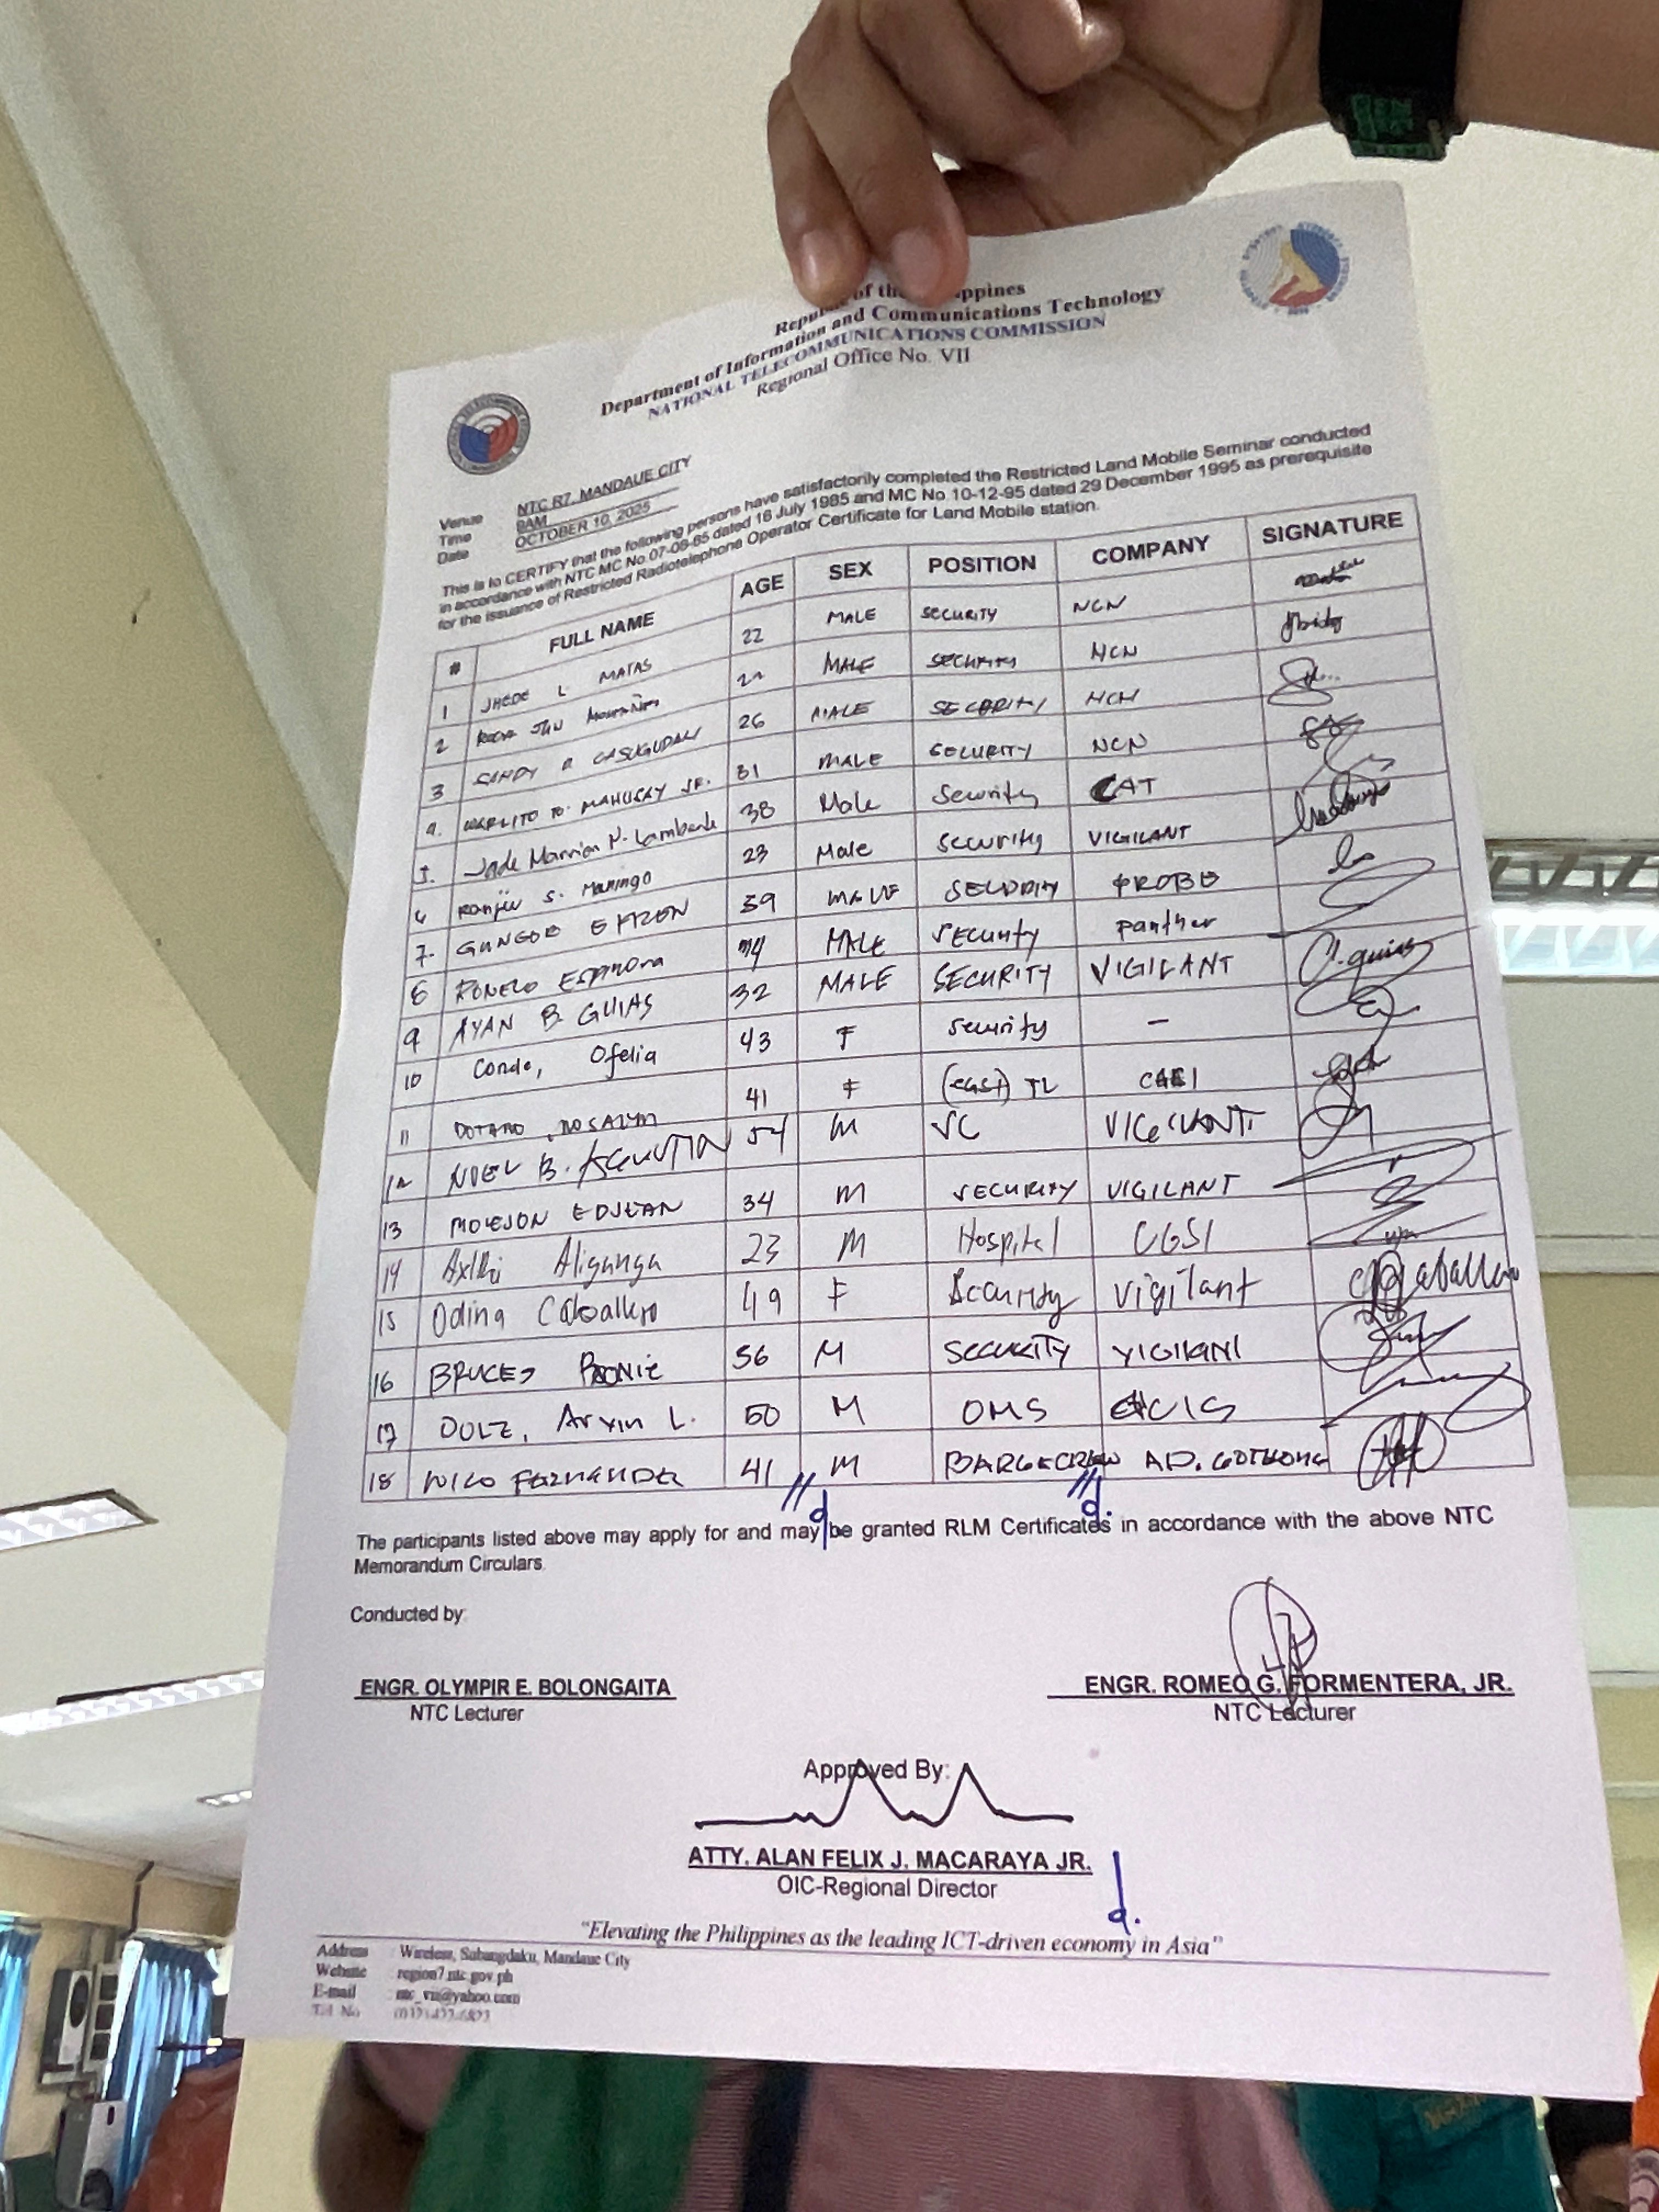 Republic of the Philippines
Department of Information and Communications Technology
NATIONAL TELECOMMUNICATIONS COMMISSION
Regional Office No. VII
Venue NTC R7, MANDAUE CITY
Time 9AM
Date OCTOBER 10, 2025
This is to CERTIFY that the following persons have satisfactorily completed the Restricted Land Mobile Seminar conducted
in accordance with NTC MC No. 07-08-85 dated 16 July 1985 and MC No. 10-12-95 dated 29 December 1995 as prerequisite
for the issuance of Restricted Radiotelephone Operator Certificate for Land Mobile station.
# FULL NAME AGE SEX POSITION COMPANY SIGNATURE
1 JHEDE L MATAS 22 MALE SECURITY NCN
2 JUN MALE SECURITY NCN
3 SANDY R CASUGUDAN 26 MALE SECURITY NCN
4. MAHUSAY JR. 31 MALE SECURITY NCN
5. Jade Marrion N. 38 Male Security CAT
6 Ranjie S. Maningo 23 Male security VIGILANT
7- 39 MALE SECURITY PROBE
8 RONELO ESPINOZA 44 MALE SECUNTY panther
9 AYAN B GUIAS 32 MALE SECURITY VIGILANT
10 Conde, Ofelia 43 F security —
11 DOTARO, ROSALYN 41 F (CGSI) TL
12 NOEL B. AGCUTIN 54 M VIGILANT
13 MOLEJON EDJEAN 34 M SECURITY VIGILANT
14 Axlhi Aliganga 23 M Hospital CGSI
15 Odina Caballero 49 F Security Vigilant
16 BRUCES 56 M SECURITY VIGILANT
17 DULZ, Arvin L. 50 M OMS
18 NICO FERNANDEZ 41 M BARGECREW AD. GOTHONG
The participants listed above may apply for and may be granted RLM Certificates in accordance with the above NTC
Memorandum Circulars.
Conducted by:
ENGR. OLYMPIR E. BOLONGAITA ENGR. ROMEO G. FORMENTERA, JR.
NTC Lecturer NTC Lecturer
Approved By:
ATTY. ALAN FELIX J. MACARAYA JR.
OIC-Regional Director
"Elevating the Philippines as the leading ICT-driven economy in Asia"
Address : Wireless, Subangdaku, Mandaue City
Website : region7.ntc.gov.ph
E-mail : ntc_vii@yahoo.com
Tel. No.